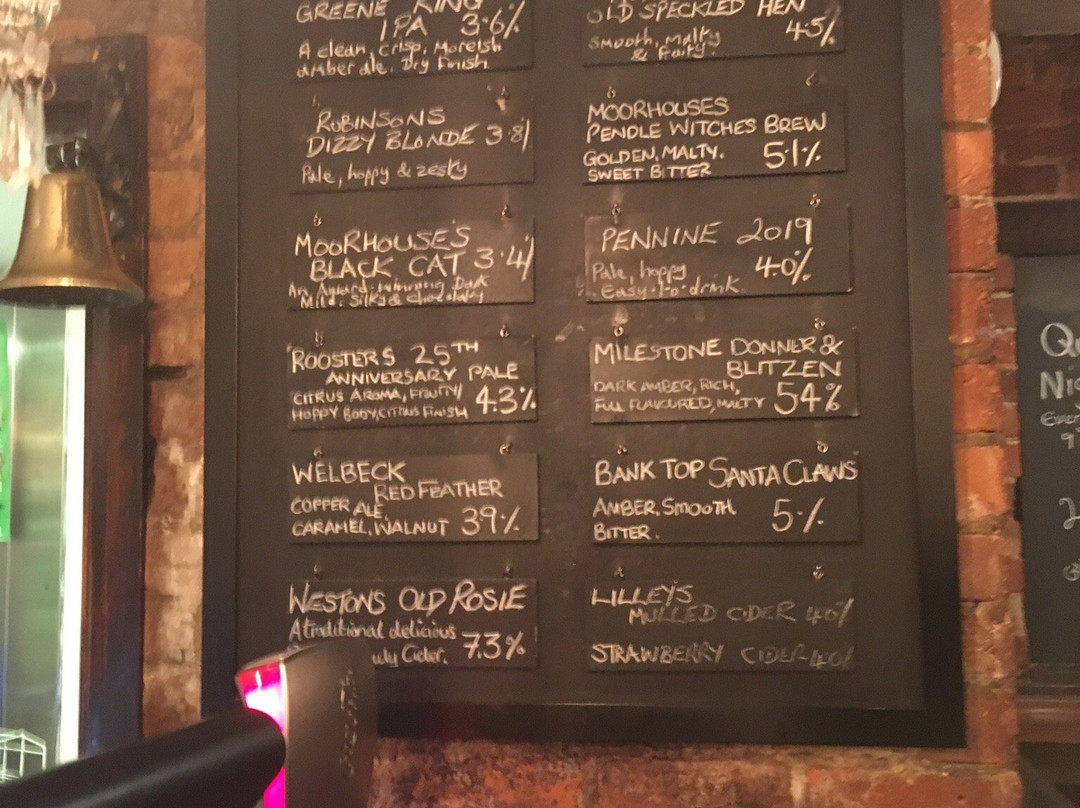 GREENE KING
IPA 3.6%
A clean, crisp, Moreish
amber ale. Dry Finish.
ROBINSONS
DIZZY BLONDE 3.8%
Pale, hoppy & zesty
MOORHOUSE'S
BLACK CAT 3.4%
An Award-winning Dark
Mild. Silky & chocolatey
ROOSTERS 25TH
ANNIVERSARY PALE
CITRUS AROMA, FRUITY/
HOPPY BODY, CITRUS FINISH 4.3%
WELBECK
RED FEATHER
COPPER ALE,
CARAMEL, WALNUT 3.9%
WESTONS OLD ROSIE
A traditional delicious
udy Cider. 7.3%
OLD SPECKLED HEN
4.5%
Smooth, Malty
& Fruity.
MOORHOUSES
PENDLE WITCHES BREW
GOLDEN, MALTY. 5.1%
SWEET BITTER
PENNINE 2019
Pale, hoppy 4.0%
Easy-to-drink.
MILESTONE DONNER &
BLITZEN
DARK AMBER, RICH,
FULL FLAVOURED, MALTY 5.4%
BANK TOP SANTA CLAWS
AMBER, SMOOTH 5.%
BITTER.
LILLEY'S
MULLED CIDER 4.0%
STRAWBERRY CIDER 4.0%